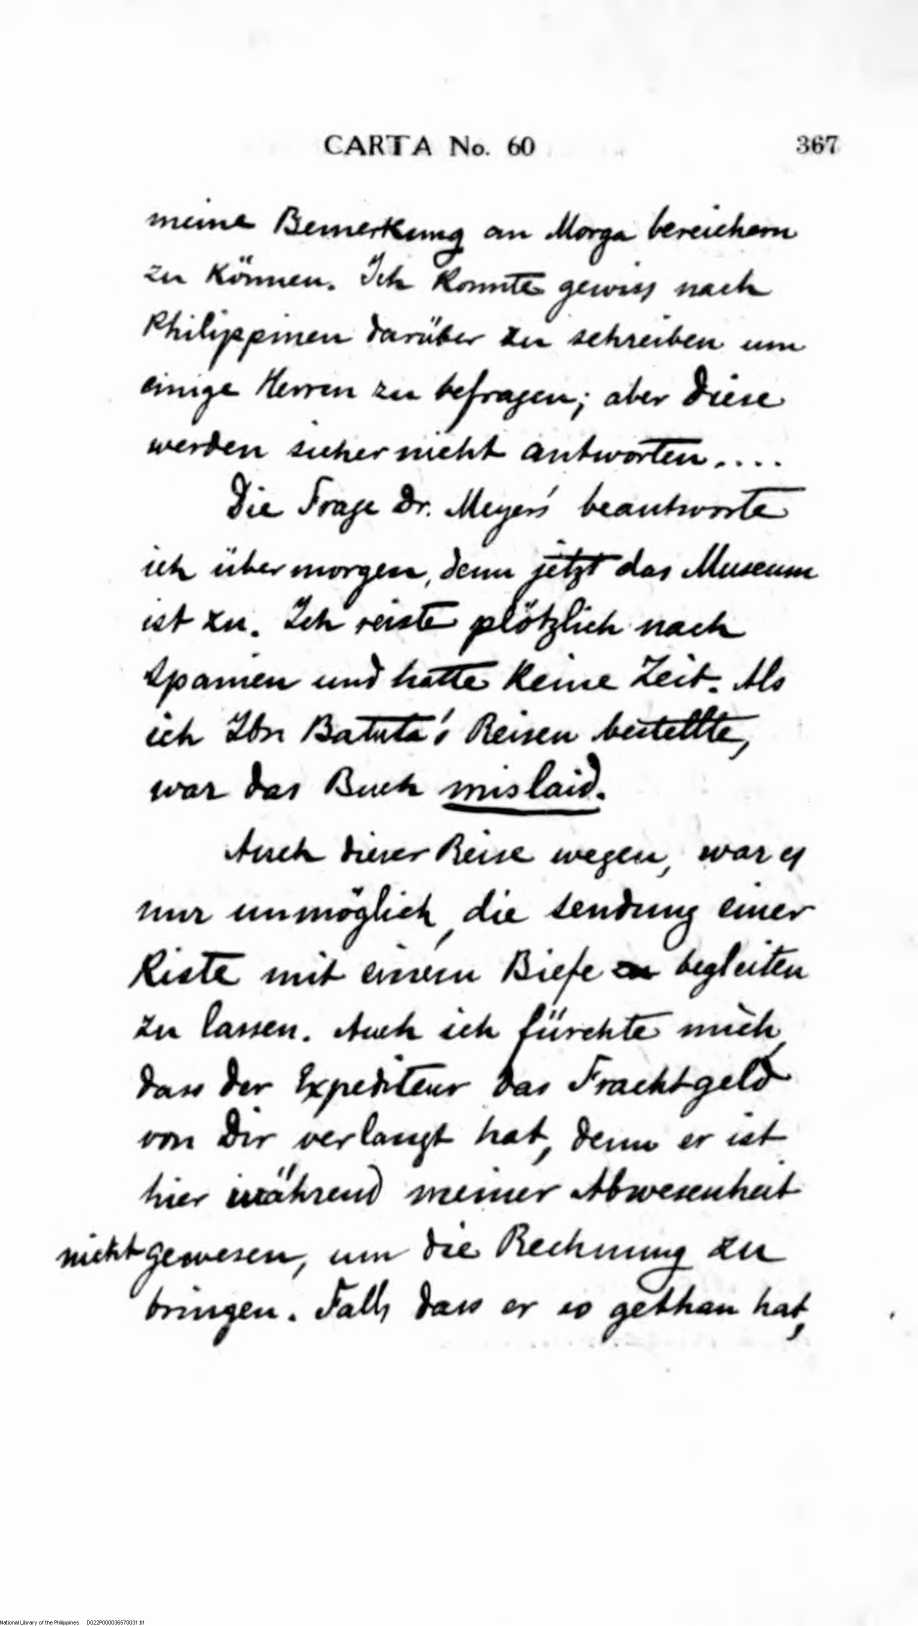 CARTA No. 60 367
meine Bemerkung an Morga bereichern
zu können. Ich konnte gewiss nach
Philippinen darüber zu schreiben um
einige Herren zu befragen; aber diese
werden sicher nicht antworten....
Die Frage Dr. Meyers' beantworte
ich übermorgen, denn jetzt das Museum
ist zu. Ich reiste plötzlich nach
Spanien und hatte keine Zeit. Als
ich Ibn Batuta's Reisen bestellte,
war das Buch mislaid.
Auch dieser Reise wegen, war es
nur unmöglich, die sendung einer
Kiste mit einem Biefe begleiten
zu lassen. Auch ich fürchte mich,
dass der Expediteur das Frachtgeld
von Dir verlangt hat, denn er ist
hier während meiner Abwesenheit
nicht gewesen, um die Rechnung zu
bringen. Falls dass er so gethan hat,
National Library of the Philippines